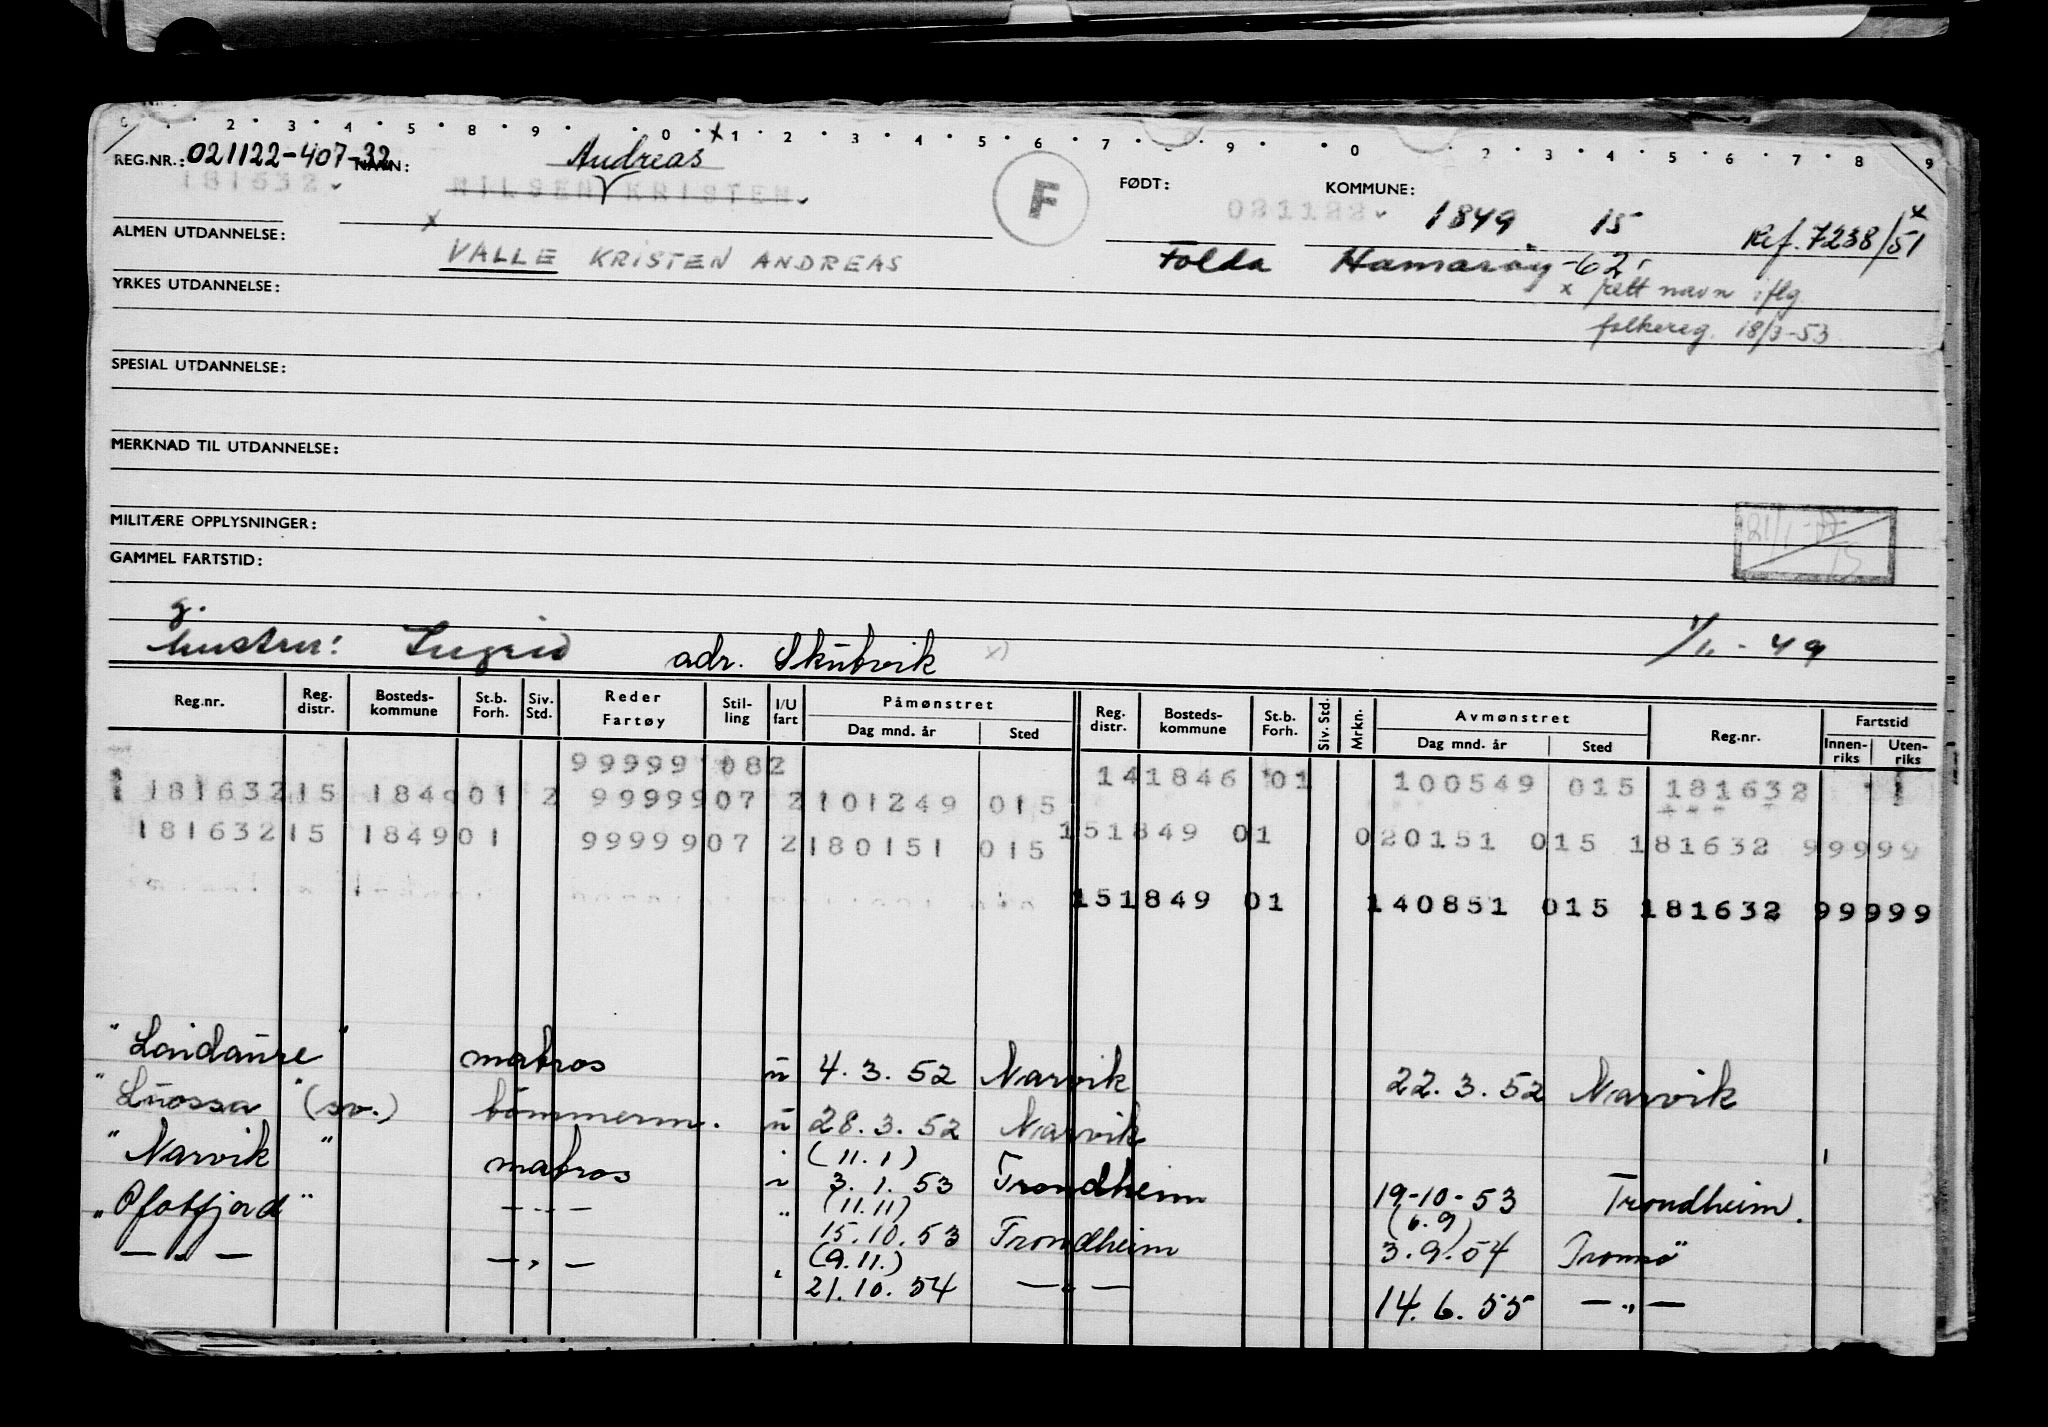 REG.NR.: 021122-407-32 NAVN: Andreas
181632 NILSEN KRISTEN F FØDT: 021122 KOMMUNE: 1849 15 Ref. 7238/51
ALMEN UTDANNELSE: x VALLE KRISTEN ANDREAS Folda Hamarøy -62
YRKES UTDANNELSE: x rett navn iflg.
folkereg. 18/3-53
SPESIAL UTDANNELSE:
MERKNAD TIL UTDANNELSE:
MILITÆRE OPPLYSNINGER:
GAMMEL FARTSTID:
g.
hustru: Ingrid adr. Skutvik x) 1/11-49
Reg.nr. Reg. distr. Bosteds-kommune St.b. Forh. Siv. Std. Reder Fartøy Stil-ling I/U fart Påmønstret Reg. distr. Bosteds-kommune St.b. Forh. Siv. Std. Mrkn. Avmønstret Reg.nr. Fartstid
Dag mnd. år Sted Dag mnd. år Sted Innen-riks Uten-riks
99999 082 141846 01 100549 015 181632
181632 15 1849 01 2 99999 07 2 101249 015 151849 01 020151 015 181632 99999
181632 15 1849 01 99999 07 2 180151 015 151849 01 140851 015 181632 99999
"Laidaure" matros u 4.3.52 Narvik 22.3.52 Narvik
"Luossa" (sv.) tømmerm. u 28.3.52 Narvik
(11.1)
"Narvik" matros i 3.1.53 Trondheim 19-10-53 Trondheim.
(11.11) (6.9)
"Ofotfjord" —"— " 15.10.53 Trondheim 3.9.54 Tromsø
(9.11.)
—"— —"— " 21.10.54 —"— 14.6.55 —"—